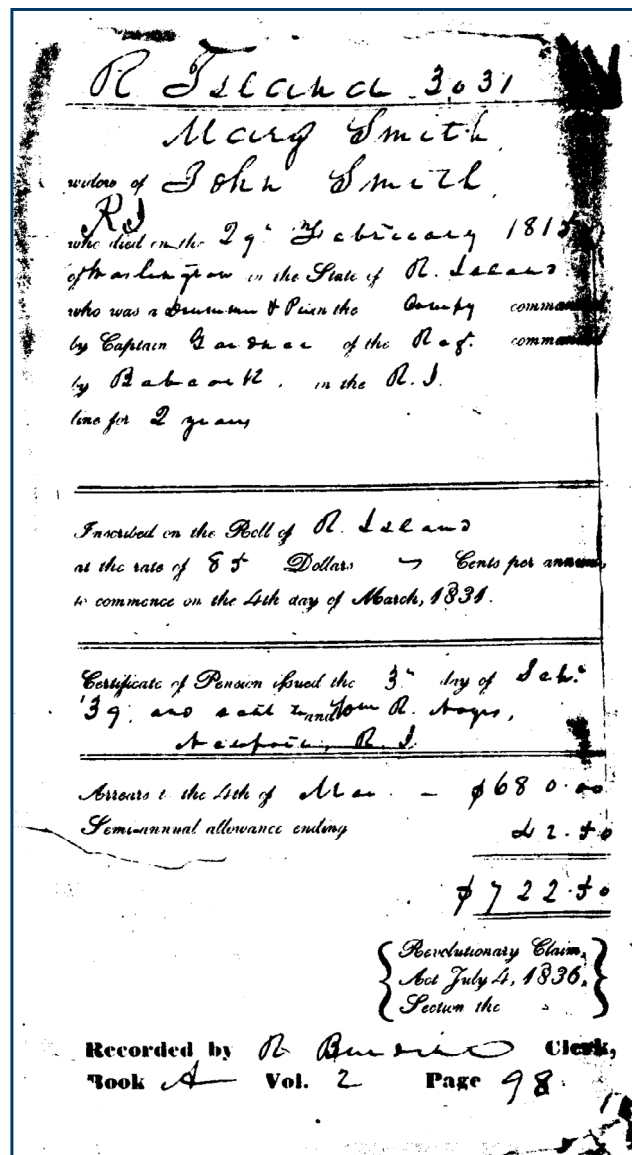 R Island 3,031
Mary Smith
widow of John Smith
R I
who died on the 29th February 1815
of Washington in the State of R. Island
who was a Drummer & P in the Compy commanded
by Captain Gardner of the Reg. commanded
by Babcock. in the R. I.
line for 2 years
Inscribed on the Roll of R. Island
at the rate of 85 Dollars Cents per annum,
to commence on the 4th day of March, 1831.
Certificate of Pension issued the 3d day of
'39 and sent to R. Noyes,
Newport, R. I.
Arrears to the 4th of Mar - $680.00
Semi-annual allowance ending 42.50
$722.50
Revolutionary Claim,
Act July 4, 1836,
Section the
Recorded by R Clerk,
Book A Vol. 2 Page 98.